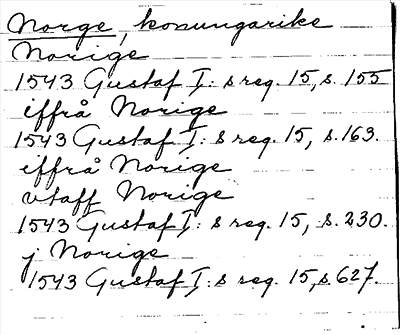 Norge, konungarike
Norige
1543 Gustaf I: s reg. 15, s. 155
iffrå Norige
1543 Gustaf I: s reg. 15, s. 163.
iffrå Norige
vtaff Norige
1543 Gustaf I: s reg. 15, s. 230.
j Norige
1543 Gustaf I: s reg. 15, s. 627.